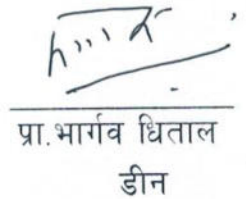 प्रा.भार्गव धिताल
डीन